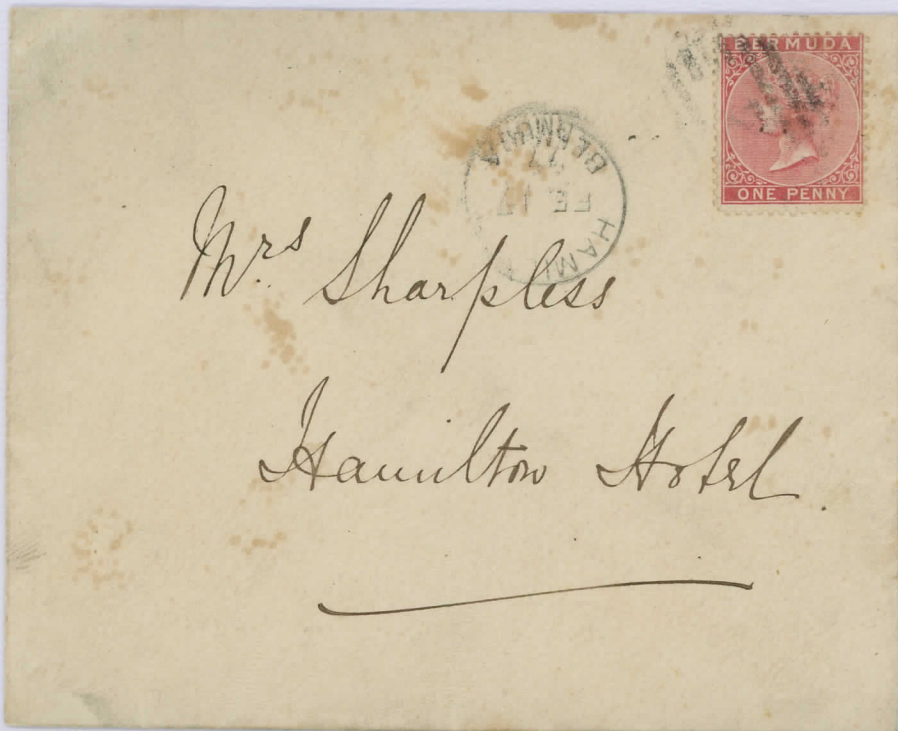 BERMUDA
ONE PENNY
BERMUDA
FE 17
Mrs Sharpless
Hamilton Hotel.